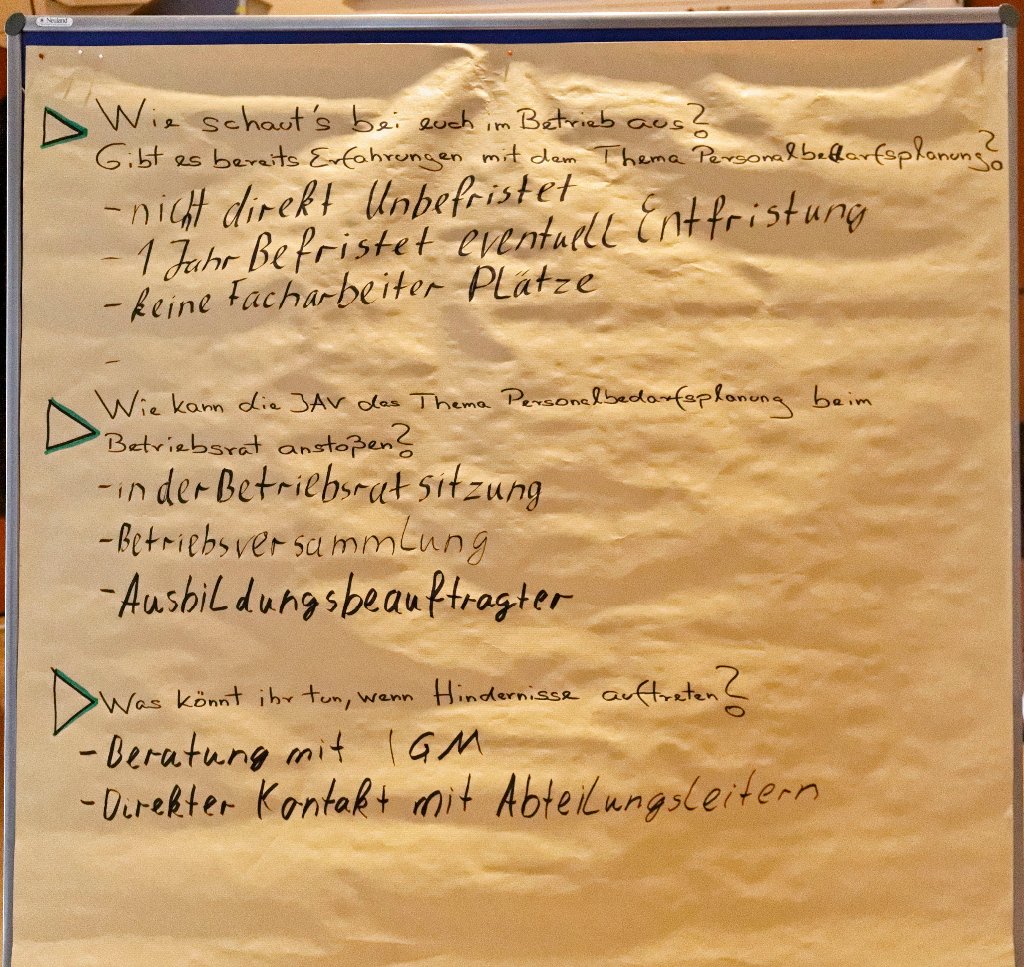 Neuland
Wie schaut's bei euch im Betrieb aus?
Gibt es bereits Erfahrungen mit dem Thema Personalbedarfsplanung?
- nicht direkt Unbefristet
- 1 Jahr Befristet eventuell Entfristung
- keine Facharbeiter Plätze
-
Wie kann die JAV das Thema Personalbedarfsplanung beim
Betriebsrat anstoßen?
- in der Betriebsrat sitzung
- Betriebsversammlung
- Ausbildungsbeauftragter
Was könnt ihr tun, wenn Hindernisse auftreten?
- Beratung mit IGM
- Direkter Kontakt mit Abteilungsleitern